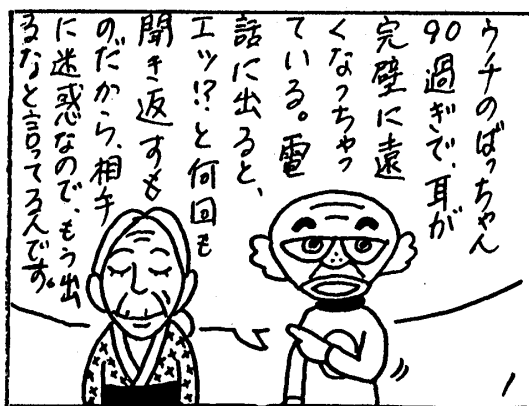 ウチのばっちゃん
90過ぎで、耳が
完壁に遠
くなっちゃっ
ている。電
話に出ると、
エッ!?と何回も
聞き返すも
のだから、相手
に迷惑なので、もう出
るなと言ってるんです。
1